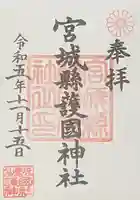 奉拝
宮城縣護國神社
令和五年十一月十五日